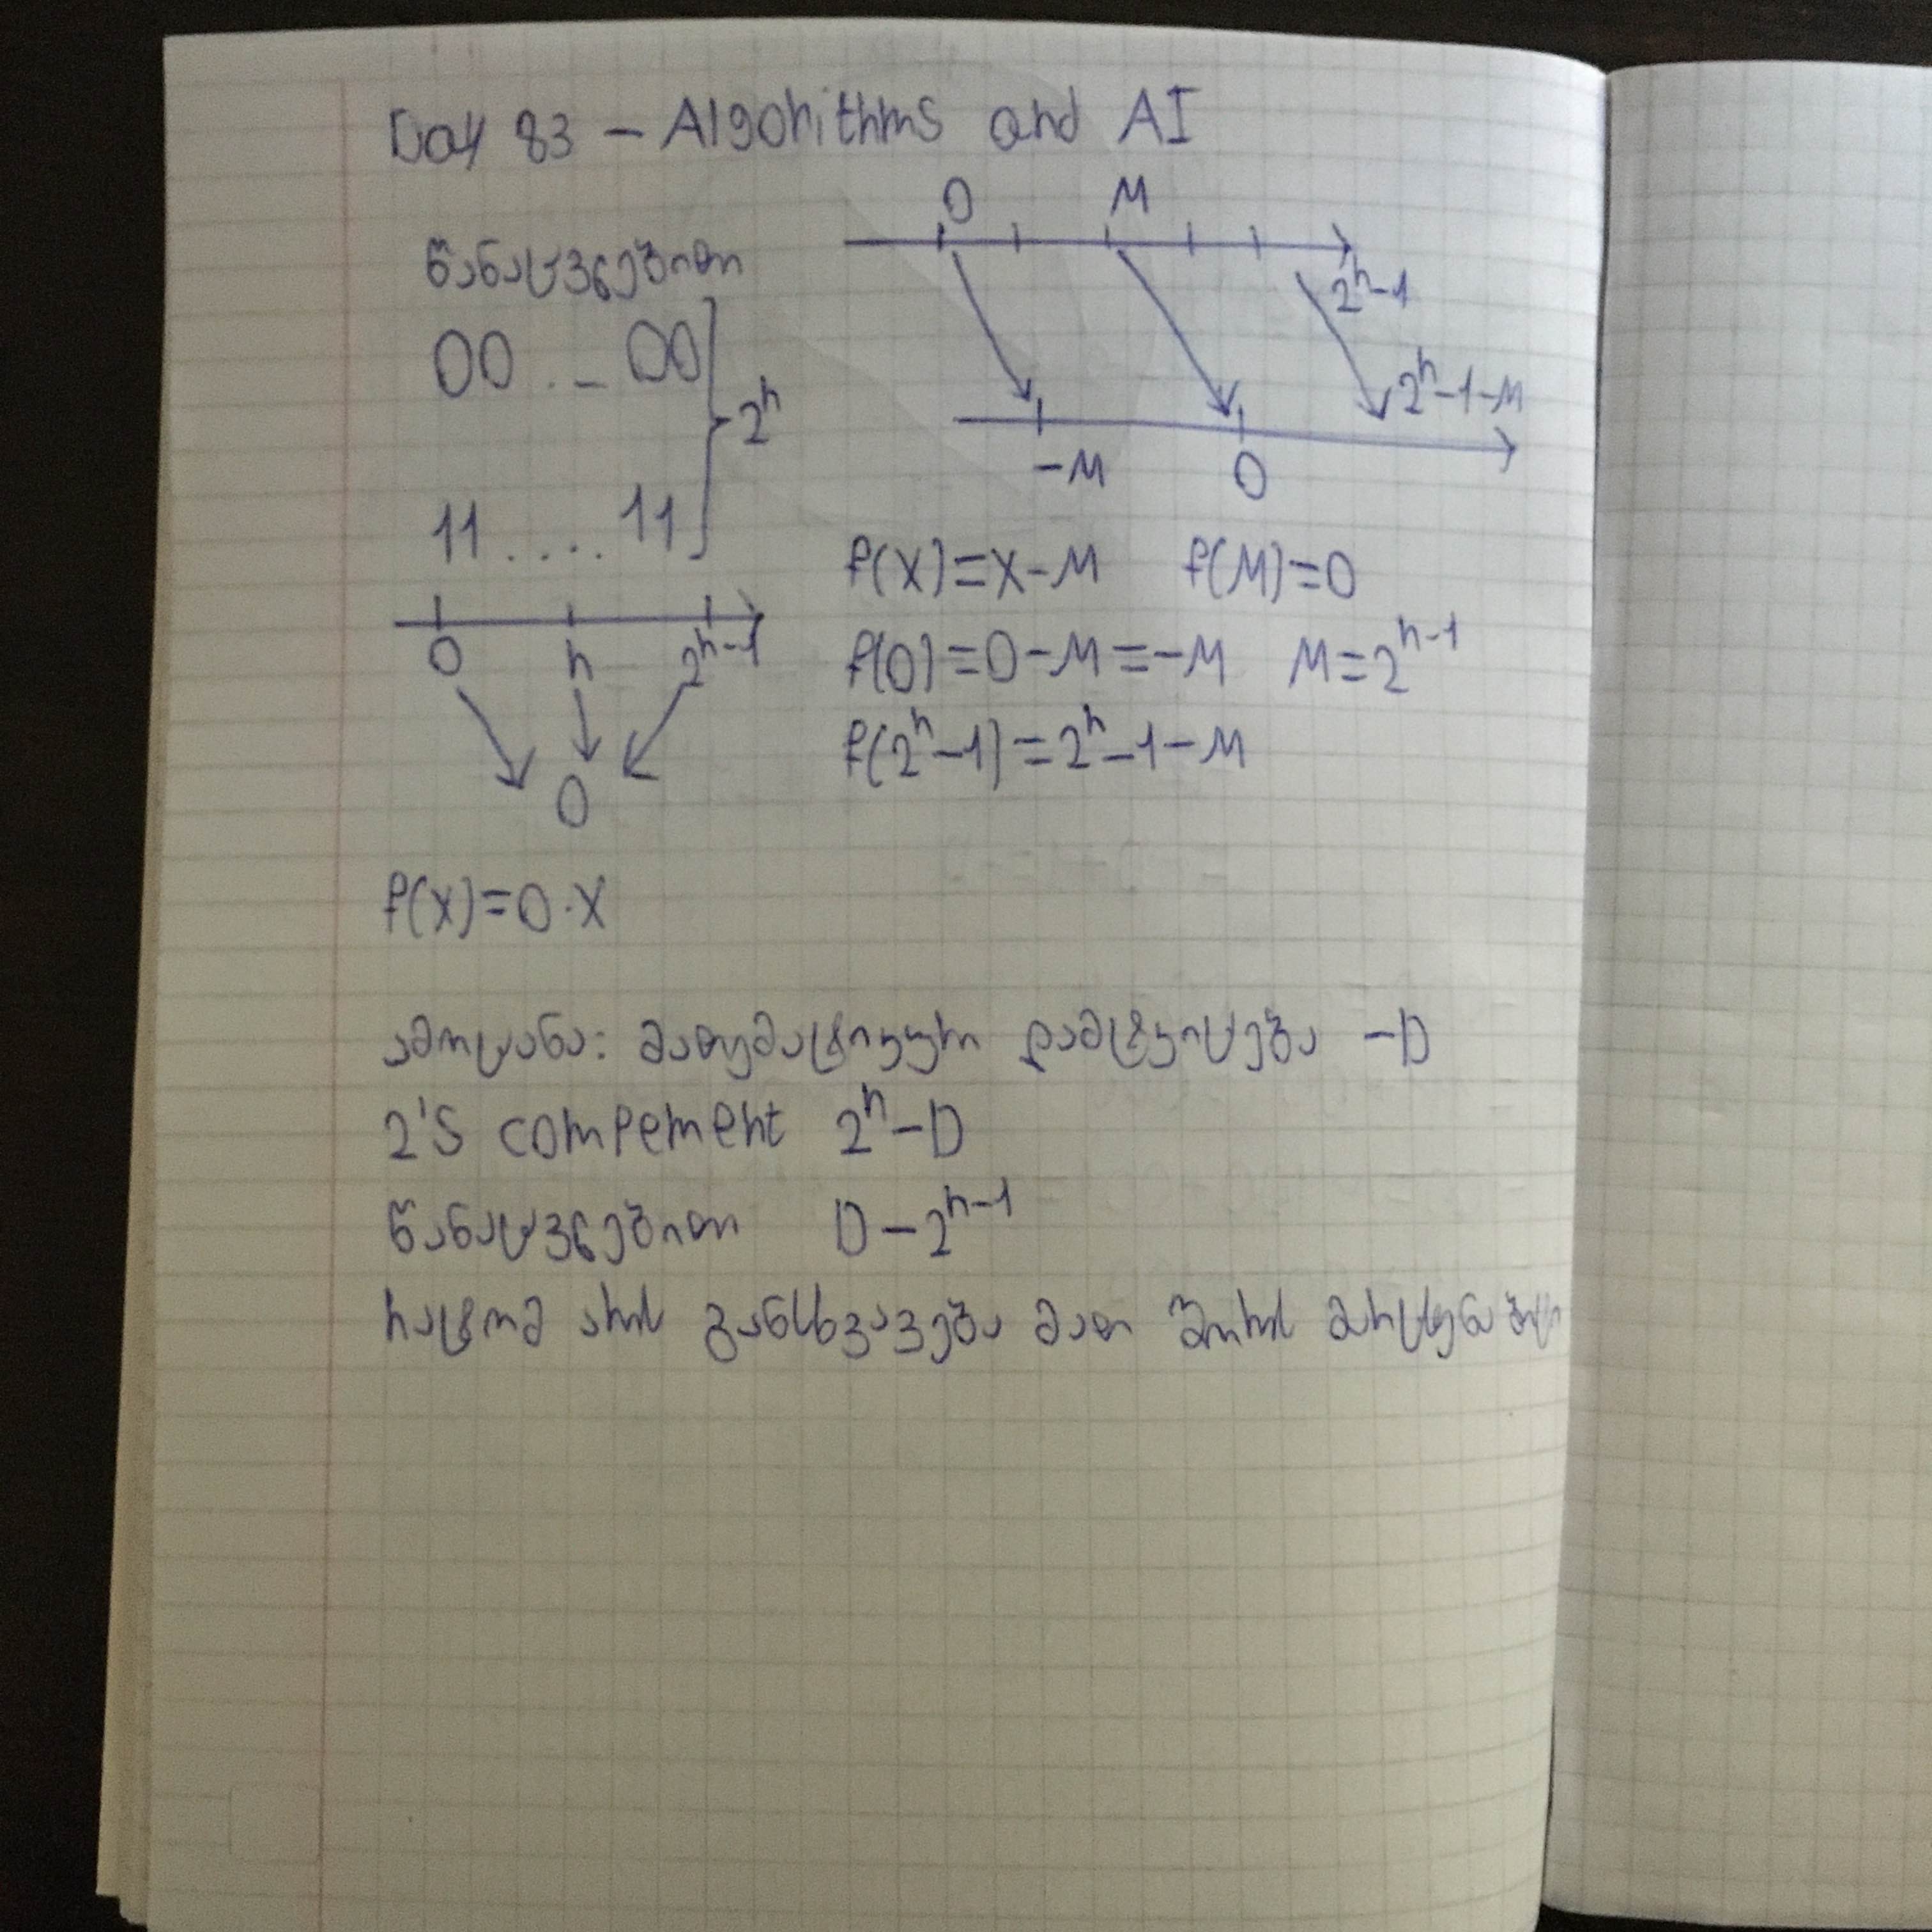 Day 83 – Algorithms and AI
წანაცვლებითი
00 ... 00
2ⁿ
11 .... 11
0 n 2ⁿ⁻¹
0
f(x)=0·x
0 M
2ⁿ-1
2ⁿ-1-M
-M 0
f(x)=x-M f(M)=0
f(0)=0-M=-M M=2ⁿ⁻¹
f(2ⁿ-1)=2ⁿ-1-M
ამოცანა: მათემატიკური დამტკიცება -D
2's compement 2ⁿ-D
წანაცვლებითი D-2ⁿ⁻¹
რატომ არის განსხვავება მათ შორის